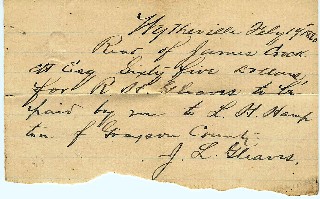 Wytheville Feby 19th
Recd of James Crock
ett Esqr Sixty five dollars
for R. H. Gleaves to be
paid by me to L. H. Hamp
ton of Grayson County.
J. L. Gleaves.